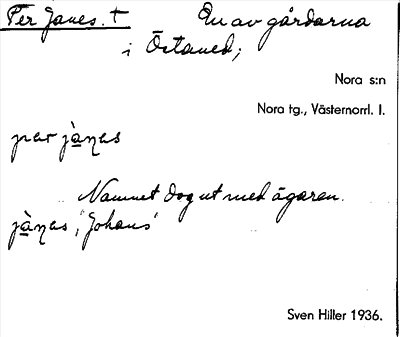 Per Janes. † En av gårdarna
i Östaned;
Nora s:n
Nora tg., Västernorrl. l.
per jàn̥as
Namnet dog ut med ägaren.
jàn̥as, 'Johans'
Sven Hiller 1936.